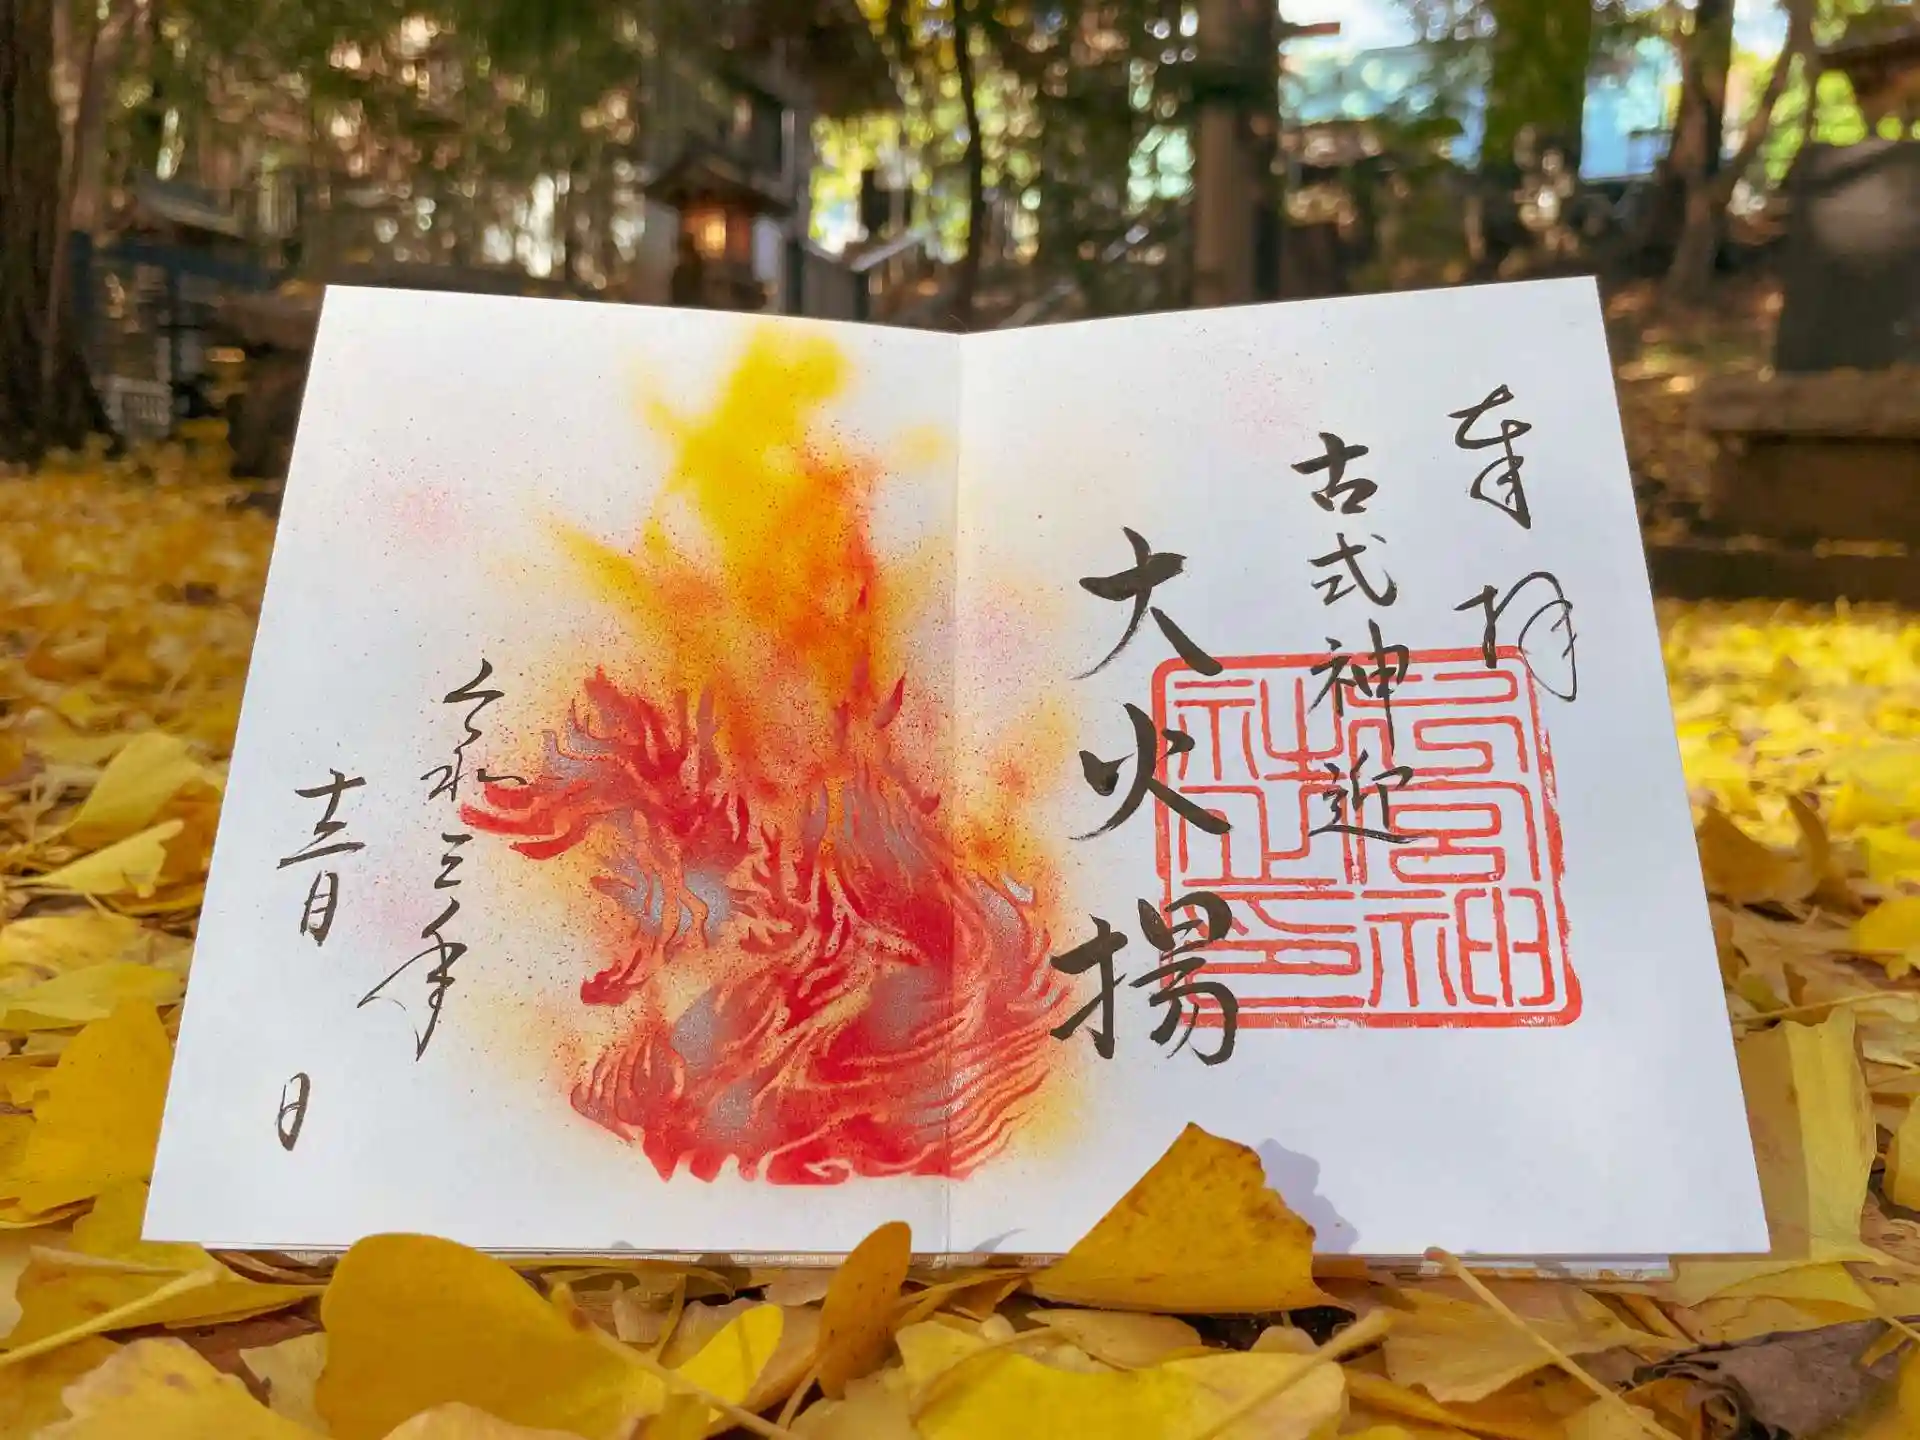 奉拝
古式神迎
大火揚
令和三年
十二月
日